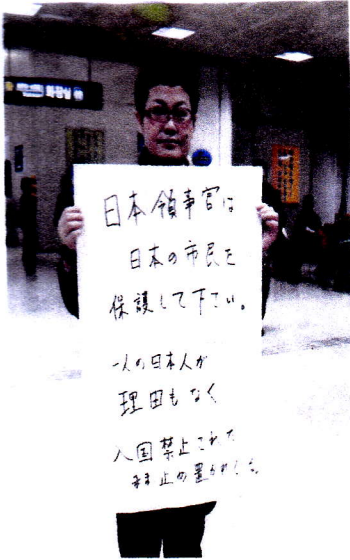 화장실
日本領事官は
日本の市民を
保護して下さい。
一人の日本人が
理由もなく
入国禁止された